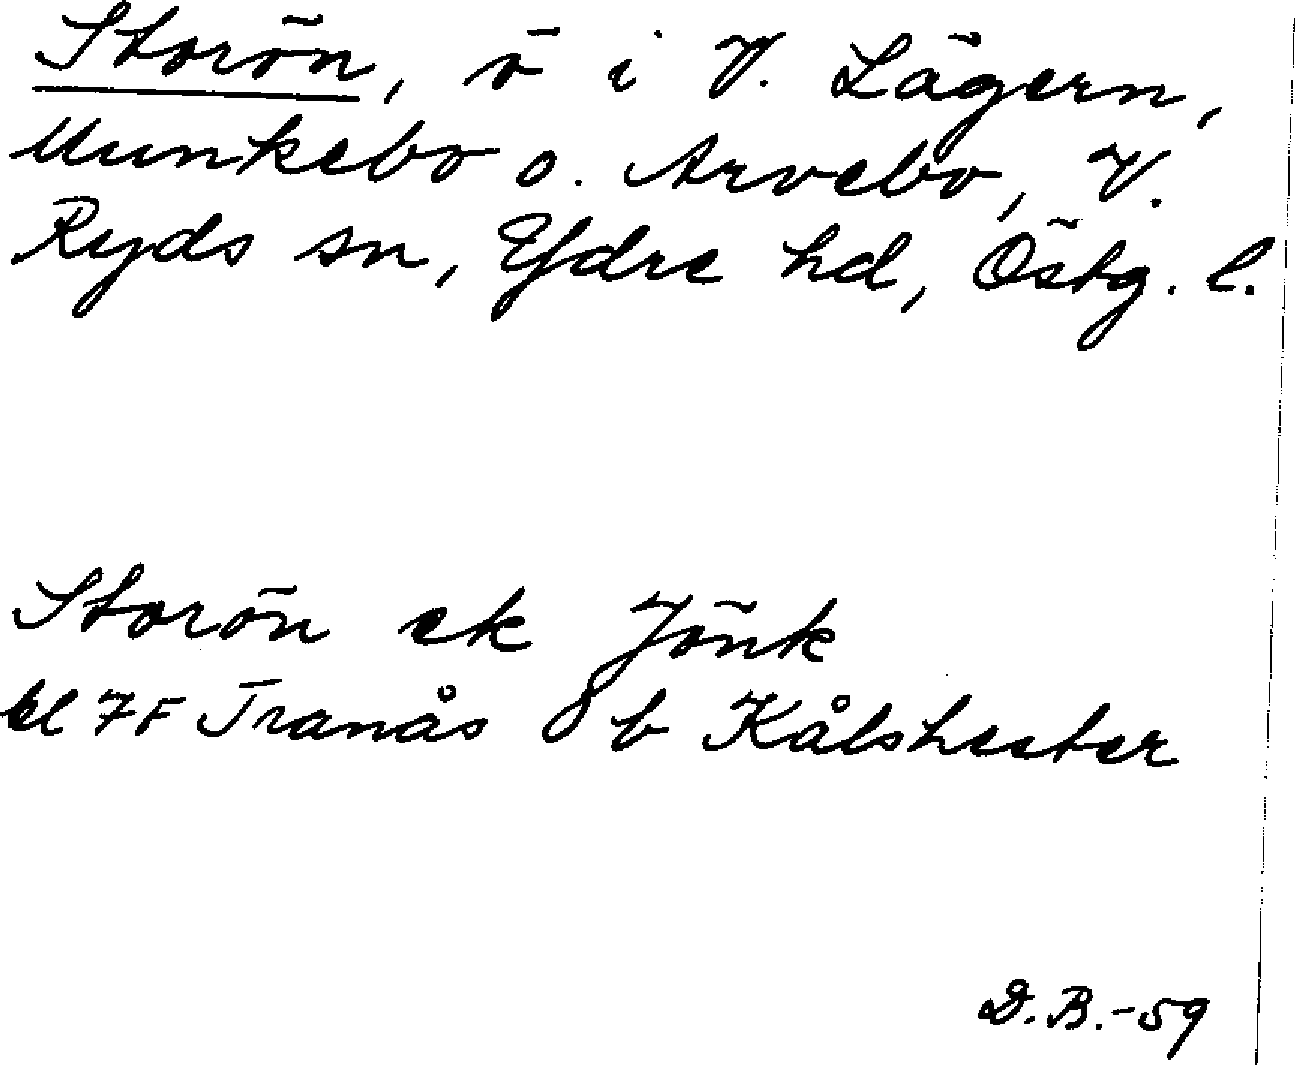 Storön, ö i V. Lägern,
Munkebo o. Arvebo, V.
Ryds sn, Ydre hd, Östg. l.
Storön ek Jönk
bl 7F Tranås 8 b Kålshester
D.B.-59